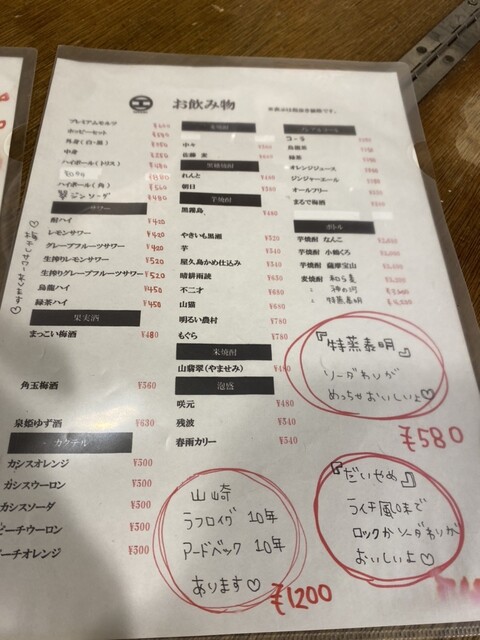 お飲み物
※表示は税抜き価格です。
プレミアムモルツ
ホッピーセット
外身(白・黒)
中身
ハイボール(トリス)
ハイボール(角)
翠ジンソーダ ¥480
サワー
酎ハイ ¥420
レモンサワー ¥420
グレープフルーツサワー ¥420
生搾りレモンサワー ¥520
生搾りグレープフルーツサワー ¥520
烏龍ハイ ¥450
緑茶ハイ ¥450
果実酒
まっこい梅酒 ¥480
角玉梅酒 ¥560
泉姫ゆず酒 ¥630
カクテル
カシスオレンジ ¥500
カシスウーロン ¥500
カシスソーダ ¥500
ピーチウーロン ¥500
ピーチオレンジ ¥500
麦焼酎
中々
佐藤 麦
黒糖焼酎
れんと
朝日
芋焼酎
黒霧島
やきいも黒瀬 ¥520
芋 ¥540
屋久島かめ仕込み ¥540
晴耕雨読 ¥630
不二才 ¥680
山猫 ¥680
明るい農村 ¥780
もぐら ¥780
米焼酎
山翡翠(やませみ) ¥480
泡盛
咲元 ¥480
残波 ¥540
春雨カリー ¥540
ノンアルコール
コーラ
烏龍茶
緑茶
オレンジジュース
ジンジャーエール
オールフリー
まるで梅酒
ボトル
芋焼酎 なんこ
芋焼酎 小鶴くろ
芋焼酎 薩摩宝山
麦焼酎
〃 特蒸泰明
『特蒸泰明』
ソーダわりが
めっちゃおいしいよ♡
¥580
『だいやめ』
ライチ風味で
ロックかソーダわりが
おいしいよ♡
山崎
ラフロイグ 10年
アードベック 10年
あります♡
¥1200